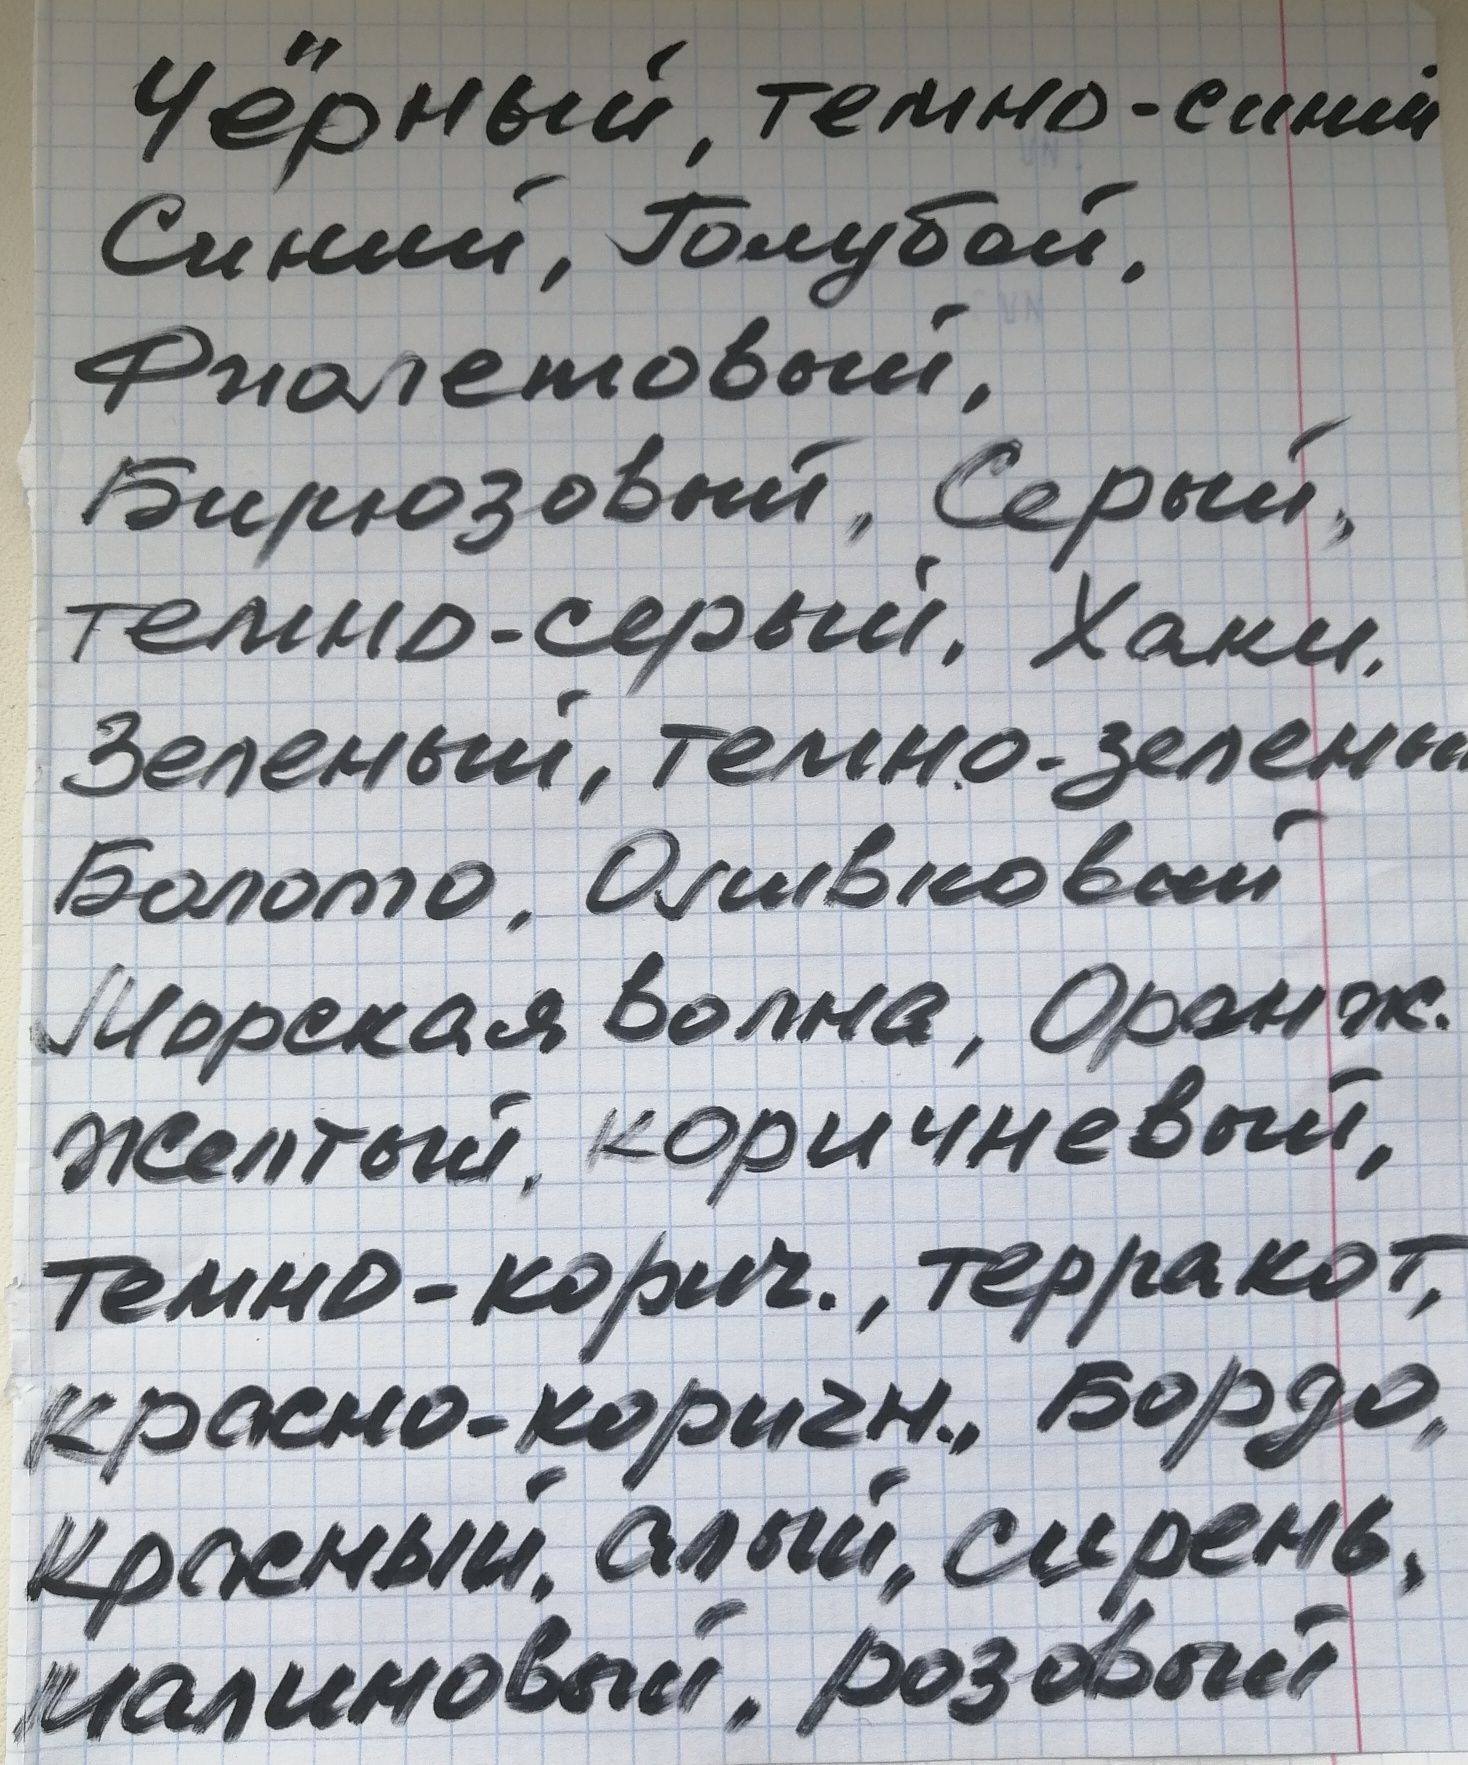 Чёрный, темно-синий
Синий, Голубой,
Фиолетовый,
Бирюзовый, Серый,
темно-серый, Хаки,
Зеленый, темно-зелены
Болото, Оливковый
Морская волна, Оранж.
Желтый, коричневый,
темно-корич., терракот,
красно-коричн., Бордо,
красный, алый, сирень,
малиновый, розовый